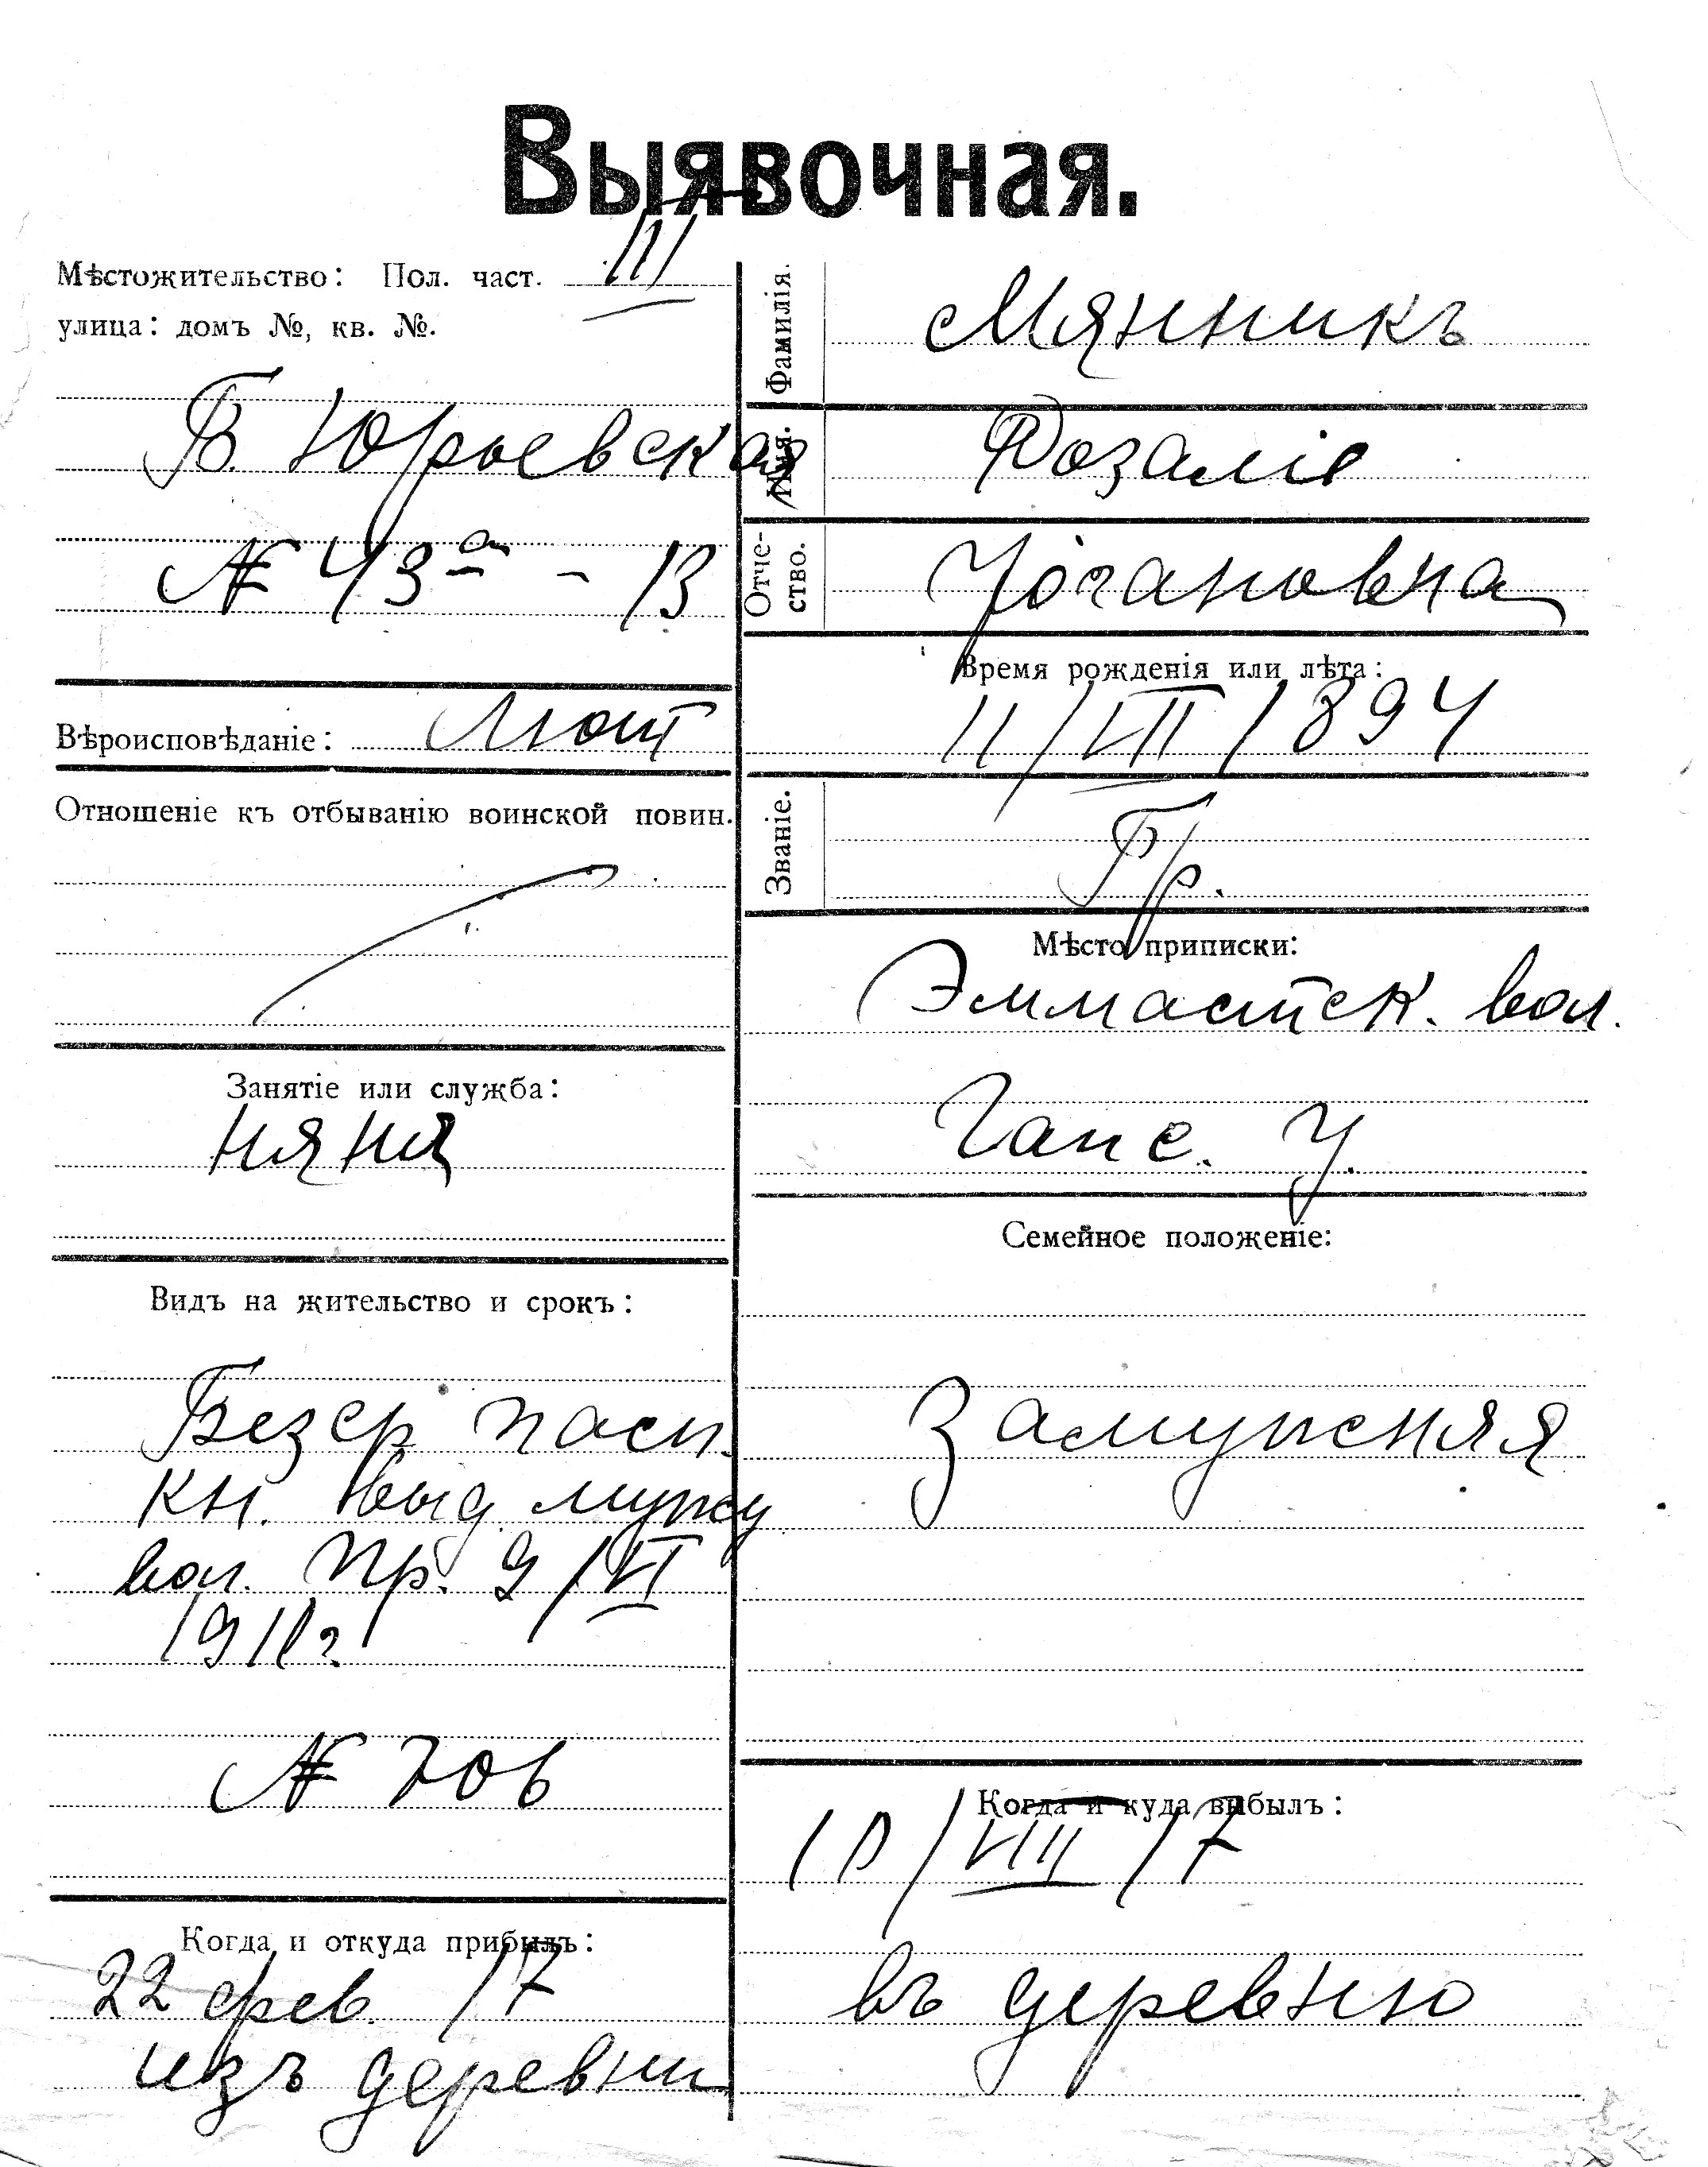 Выявочная.
Мѣстожительство: Пол. част. III
улица: домъ №, кв. №.
Б. Юрьевская
№ 43а - 13
Вѣроисповѣданіе: Лют
Отношеніе къ отбыванію воинской повин.
Занятіе или служба:
няня
Видъ на жительство и срокъ:
Безср пасп.
кн. выд. мужу
вол. пр. 9/VI
1911 г.
№ 706
Когда и откуда прибылъ:
22 фев. 17
изъ деревни
Фамилія.
Мянникъ
Имя.
Розалія
Отче-
ство.
Йогановна
Время рожденія или лѣта:
11/VII 1894
Званіе.
Гр.
Мѣсто приписки:
Эммастск. вол.
Гапс. у.
Семейное положеніе:
Замужняя
Когда и куда выбылъ:
10/VIII 17
въ деревню